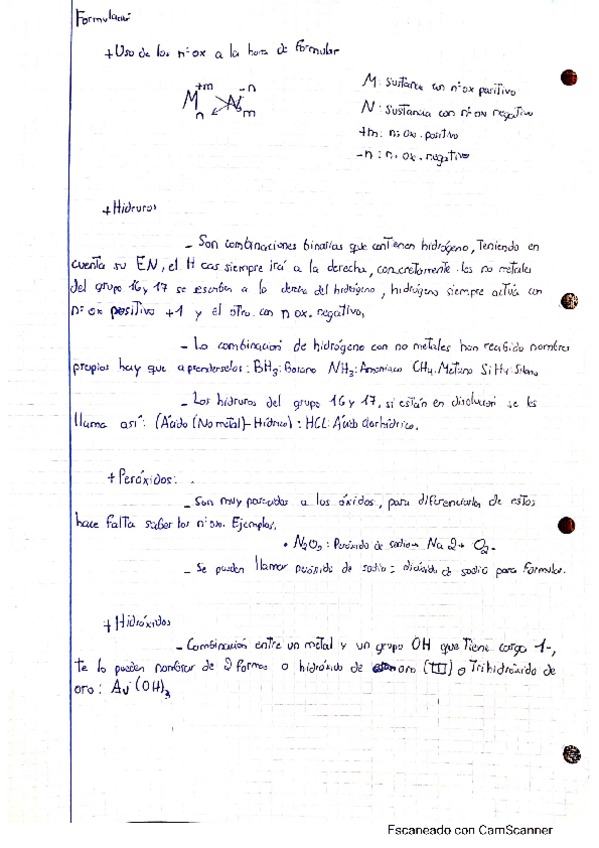 Formulación
+ Uso de los nºox a la hora de formular
M+m N-n
n m
M: Sustancia con nºox positivo
N: Sustancia con nºox negativo
+m: n: ox. positivo
-n: n. ox. negativo
+ Hidruros
- Son combinaciones binarias que contienen hidrógeno, Teniendo en
cuenta su EN, el H casi siempre irá a la derecha, concretamente los no metales
del grupo 16 y 17 se escriben a la derecha del hidrógeno, hidrógeno siempre actúa con
nº ox positivo +1 y el otro con n ox. negativo,
- La combinación de hidrógeno con no metales han recibido nombres
propios hay que aprenderselos: BH3: Borano NH3: Amoniaco CH4: Metano SiH4: Silano
- Los hidruros del grupo 16 y 17, si están en disolución se les
llama así: (Ácido (No metal)-Hídrico): HCl: Ácido clorhídrico.
+ Peróxidos:
- Son muy parecidos a los óxidos, para diferenciarlos de estos
hace falta saber los nºox. Ejemplos.
• N2O2: Peróxido de sodio → Na 2+ O2-
- Se pueden llamar peróxido de sodio = dióxido de sodio para formular.
+ Hidróxidos
- Combinación entre un metal y un grupo OH que tiene carga 1-,
te lo pueden nombrar de 2 formas o hidróxido de oro (III) o Trihidróxido de
oro: Au(OH)3
Escaneado con CamScanner